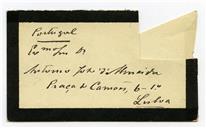 Portugal
Exmo Sr
Antonio José d'Almeida
Praça de Camões, 6-1º
Lisboa